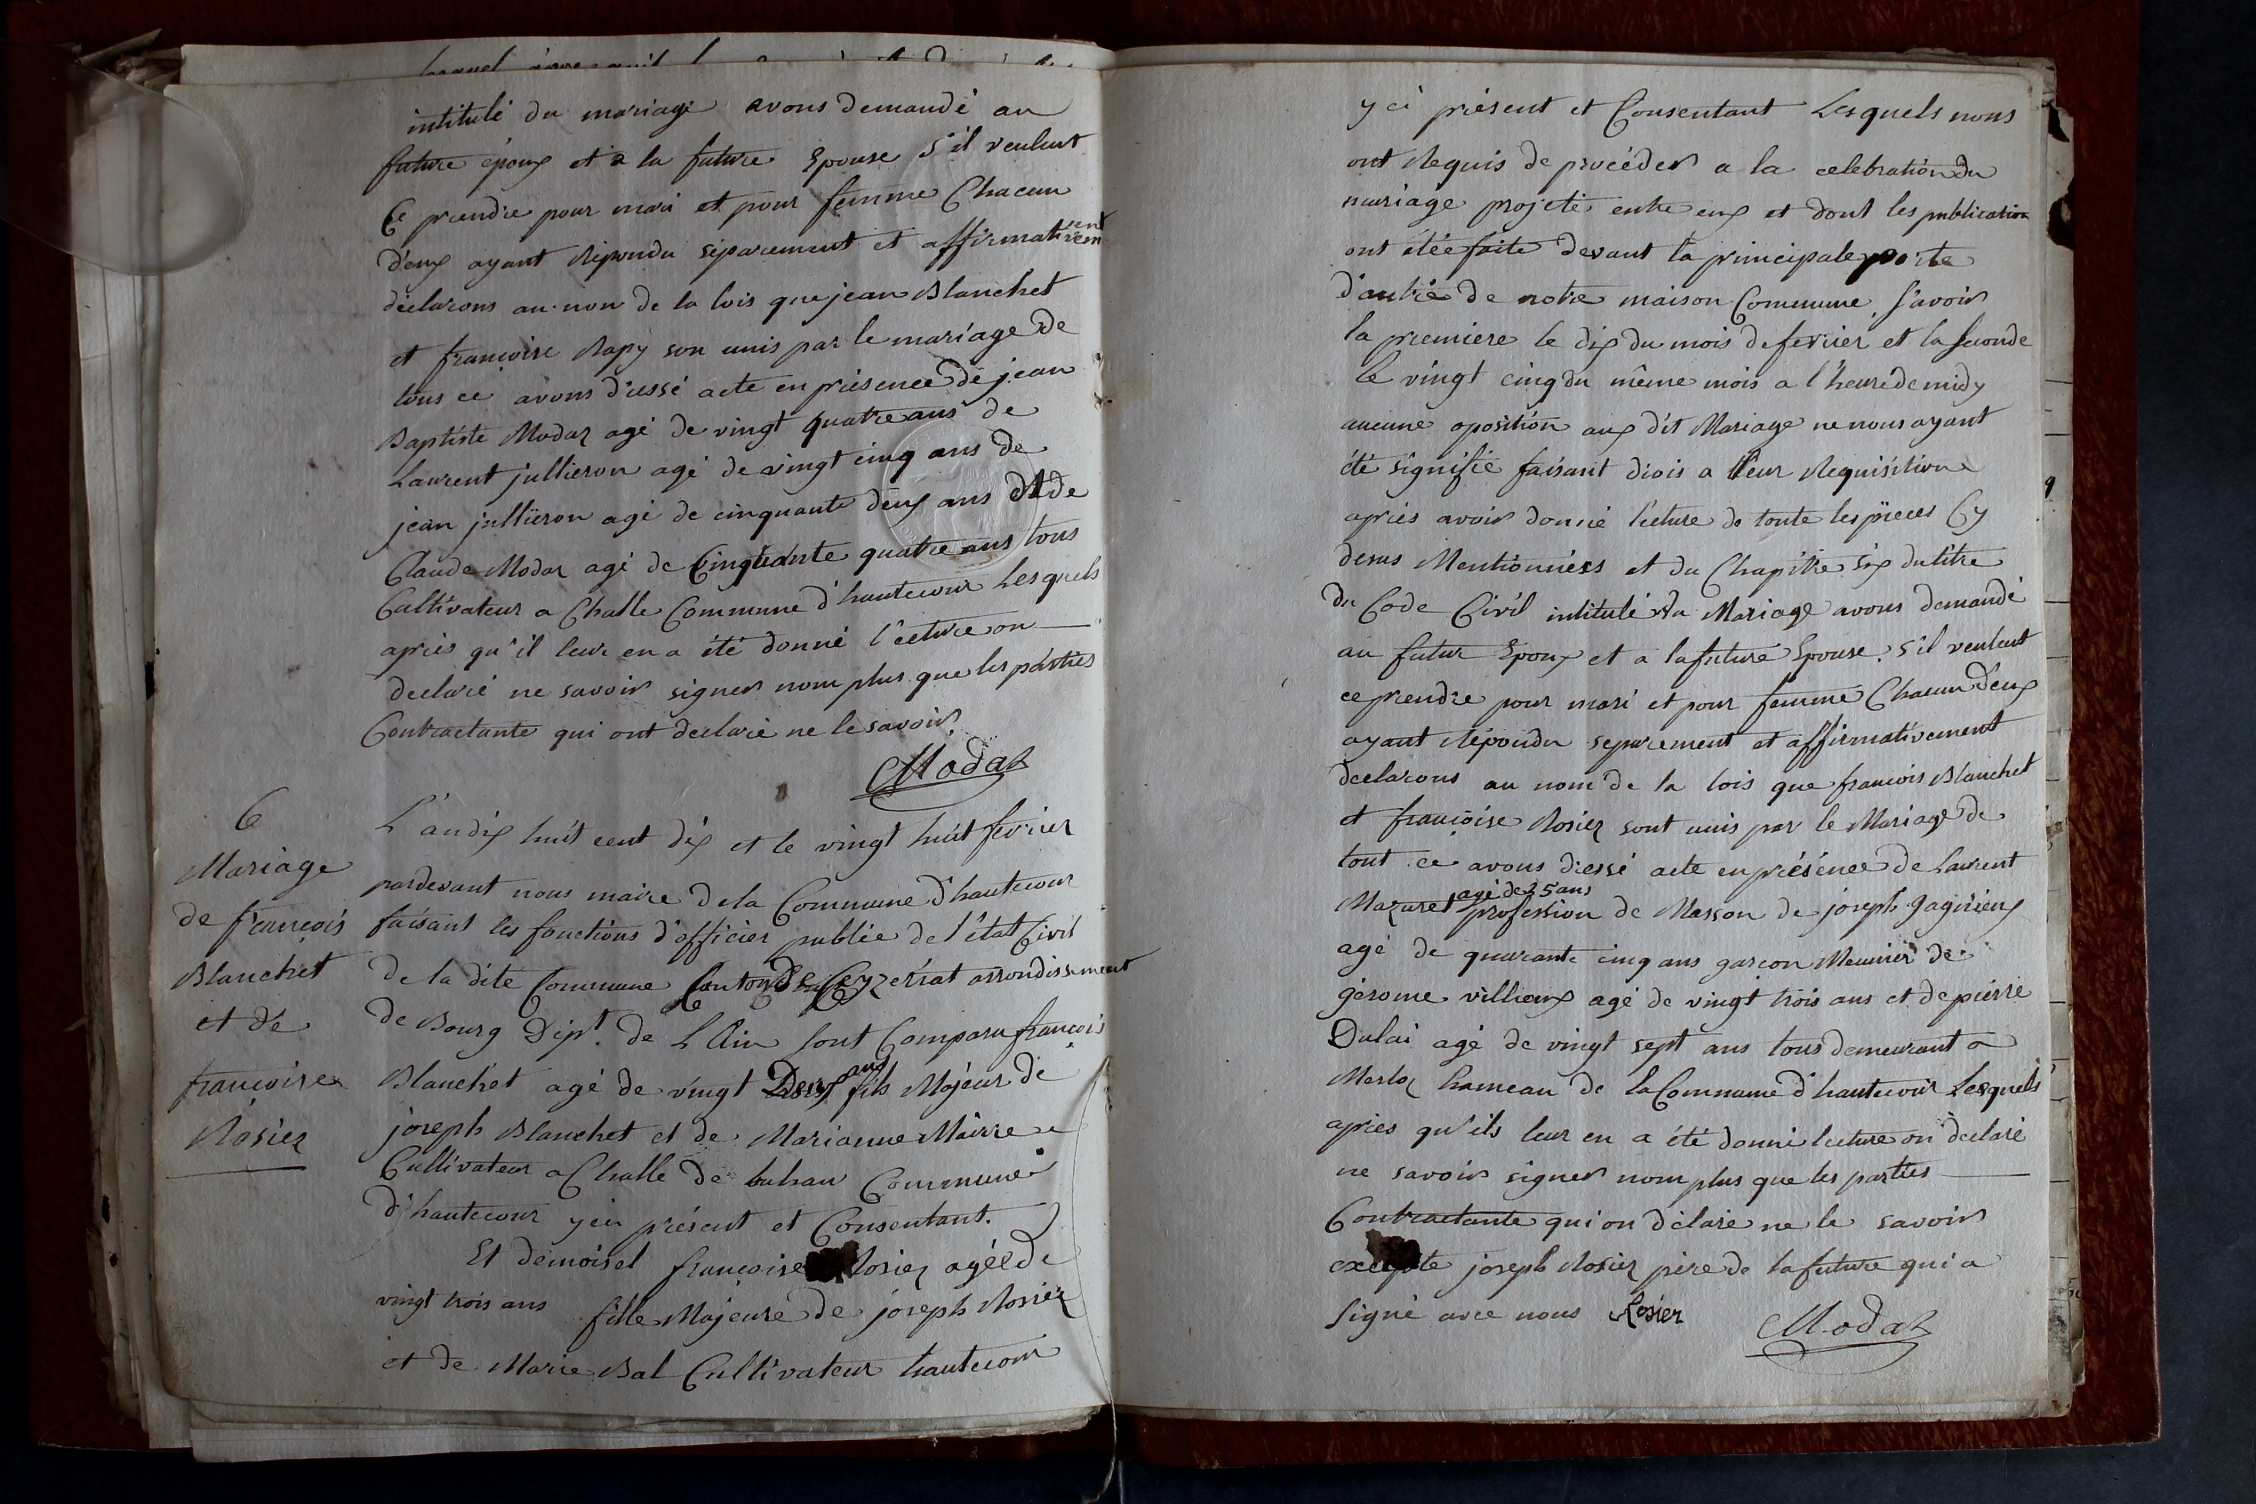 intitulé du mariage avons demandé au
future époux et a la future Epouse s'il veulent
Ce prendre pour mari et pour femme Chacun
d'eux ayant Répondu séparement et affirmativement
déclarons au non de la lois que jean Blanchet
et françoise Rapy son unis par le mariage de
tous ce avons dressé acte en présence de jean
Baptiste Modaz agé de vingt quatre ans de
Laurent jullieron agé de vingt cinq ans de
jean jullieron agé de cinquante deux ans et de
Claude Modaz agé de Cinquante quatre ans tous
Cultivateur a Challe Commune d'hautecour Lesquels
après qu'il leur en a été donné l'ecture on
declaré ne savoir signer nom plus que les parties
Contractante qui ont declaré ne le savoir
Modaz
6
Mariage
de françois
Blanchet
et de
françoise
Rosier
L'an dix huit cent dix et le vingt huit fevrier
pardevant nous maire de la Commune d'hautecour
faisant les fonctions d'officier publie de l'état Civil
de la dite Commune Canton de Ceyzeriat arrondissement
de Bourg Dept. de L'Ain sont Comparu françois
Blanchet agé de vingt Deux ans fils Majeur de
joseph Blanchet et de Marianne Mairre
Cultivateur a Challe de buhan Commune
d'hautecour y ici présent et Consentant.
Et demoisel françoise Rosier agée de
vingt trois ans fille Majeure de joseph Rosier
et de Marie Bal Cultivateur hautecour
y ci présent et Consentant Lesquels nous
ont Requis de procéder a la celebration du
mariage projeté entre eux et dont les publication
ont étée faite devant la principale porte
d'antré de notre maison Commune, savoir
la premiere le dix du mois de fevrier et la seconde
le vingt cinq du même mois a l'heure de midy
aucune oposition aux dit Mariage ne nous ayant
été signifié faisant drois a leur Requisition
après avoir donné lecture de toute les pieces Cy
desus Mentionnées et du Chapitre six du titre
du Code Civil intitulé du Mariage avons demandé
au futur Epoux et a la future Epouse s'il veulent
ce prendre pour mari et pour femme Chacun d'eux
ayant Répondu séparement et affirmativement
declarons au nom de la lois que francois Blanchet
et françoise Rosier sont unis par le Mariage de
tout ce avons dressé acte en présence de Laurent
Mazuret agé de 25 ans profession de Masson de joseph gagirieux
agé de quarante cinq ans garçon Meunier de
gérome villieux agé de vingt trois ans et de pierre
Dulai agé de vingt sept ans tous demeurant a
Merloz hameau de la Commune d'hautecour Lesquels
après qu'ils leur en a été donné lecture on declaré
ne savoir signer nom plus que les parties
Contractante qui on déclaré ne le savoir
excepte joseph Rosier père de la future qui a
signé avec nous Rosier
Modaz